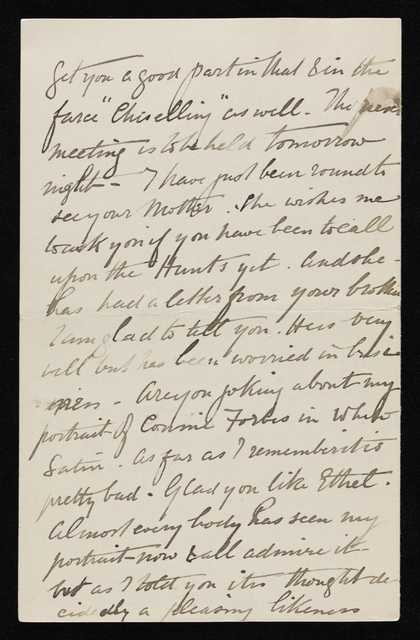 get you a good part in that & in the
farce "Chiselling" as well. The next
meeting is to be held tomorrow
night - I have just been round to
see your Mother. She wishes me
to ask you if you have been to call
upon the Hunts yet. And she -
has had a letter from your brother
I am glad to tell you. He is very
well but has been worried in busi-
ness - Are you joking about my
portrait of Connie Forbes in White
Satin. As far as I remember it is
pretty bad - Glad you like Ethel.
Almost every body has seen my
portrait now & all admire it -
but as I told you it is thought de-
cidedly a pleasing likeness